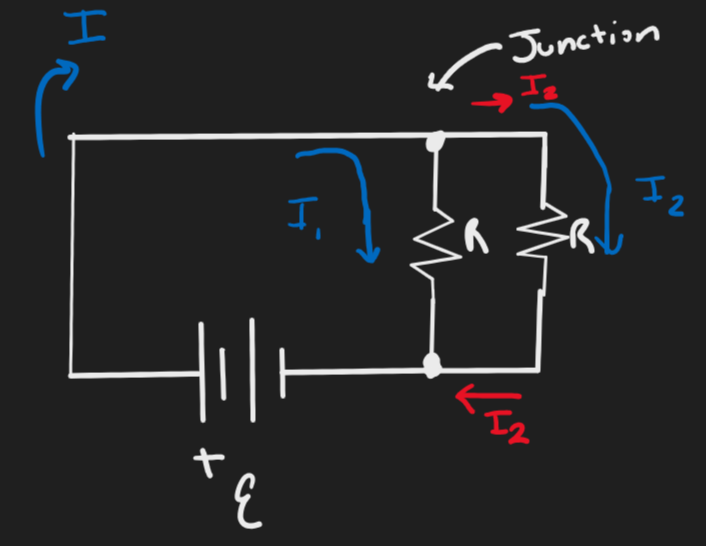 I
Junction
I₂
I₁
R
R
I₂
I₂
+
ℰ